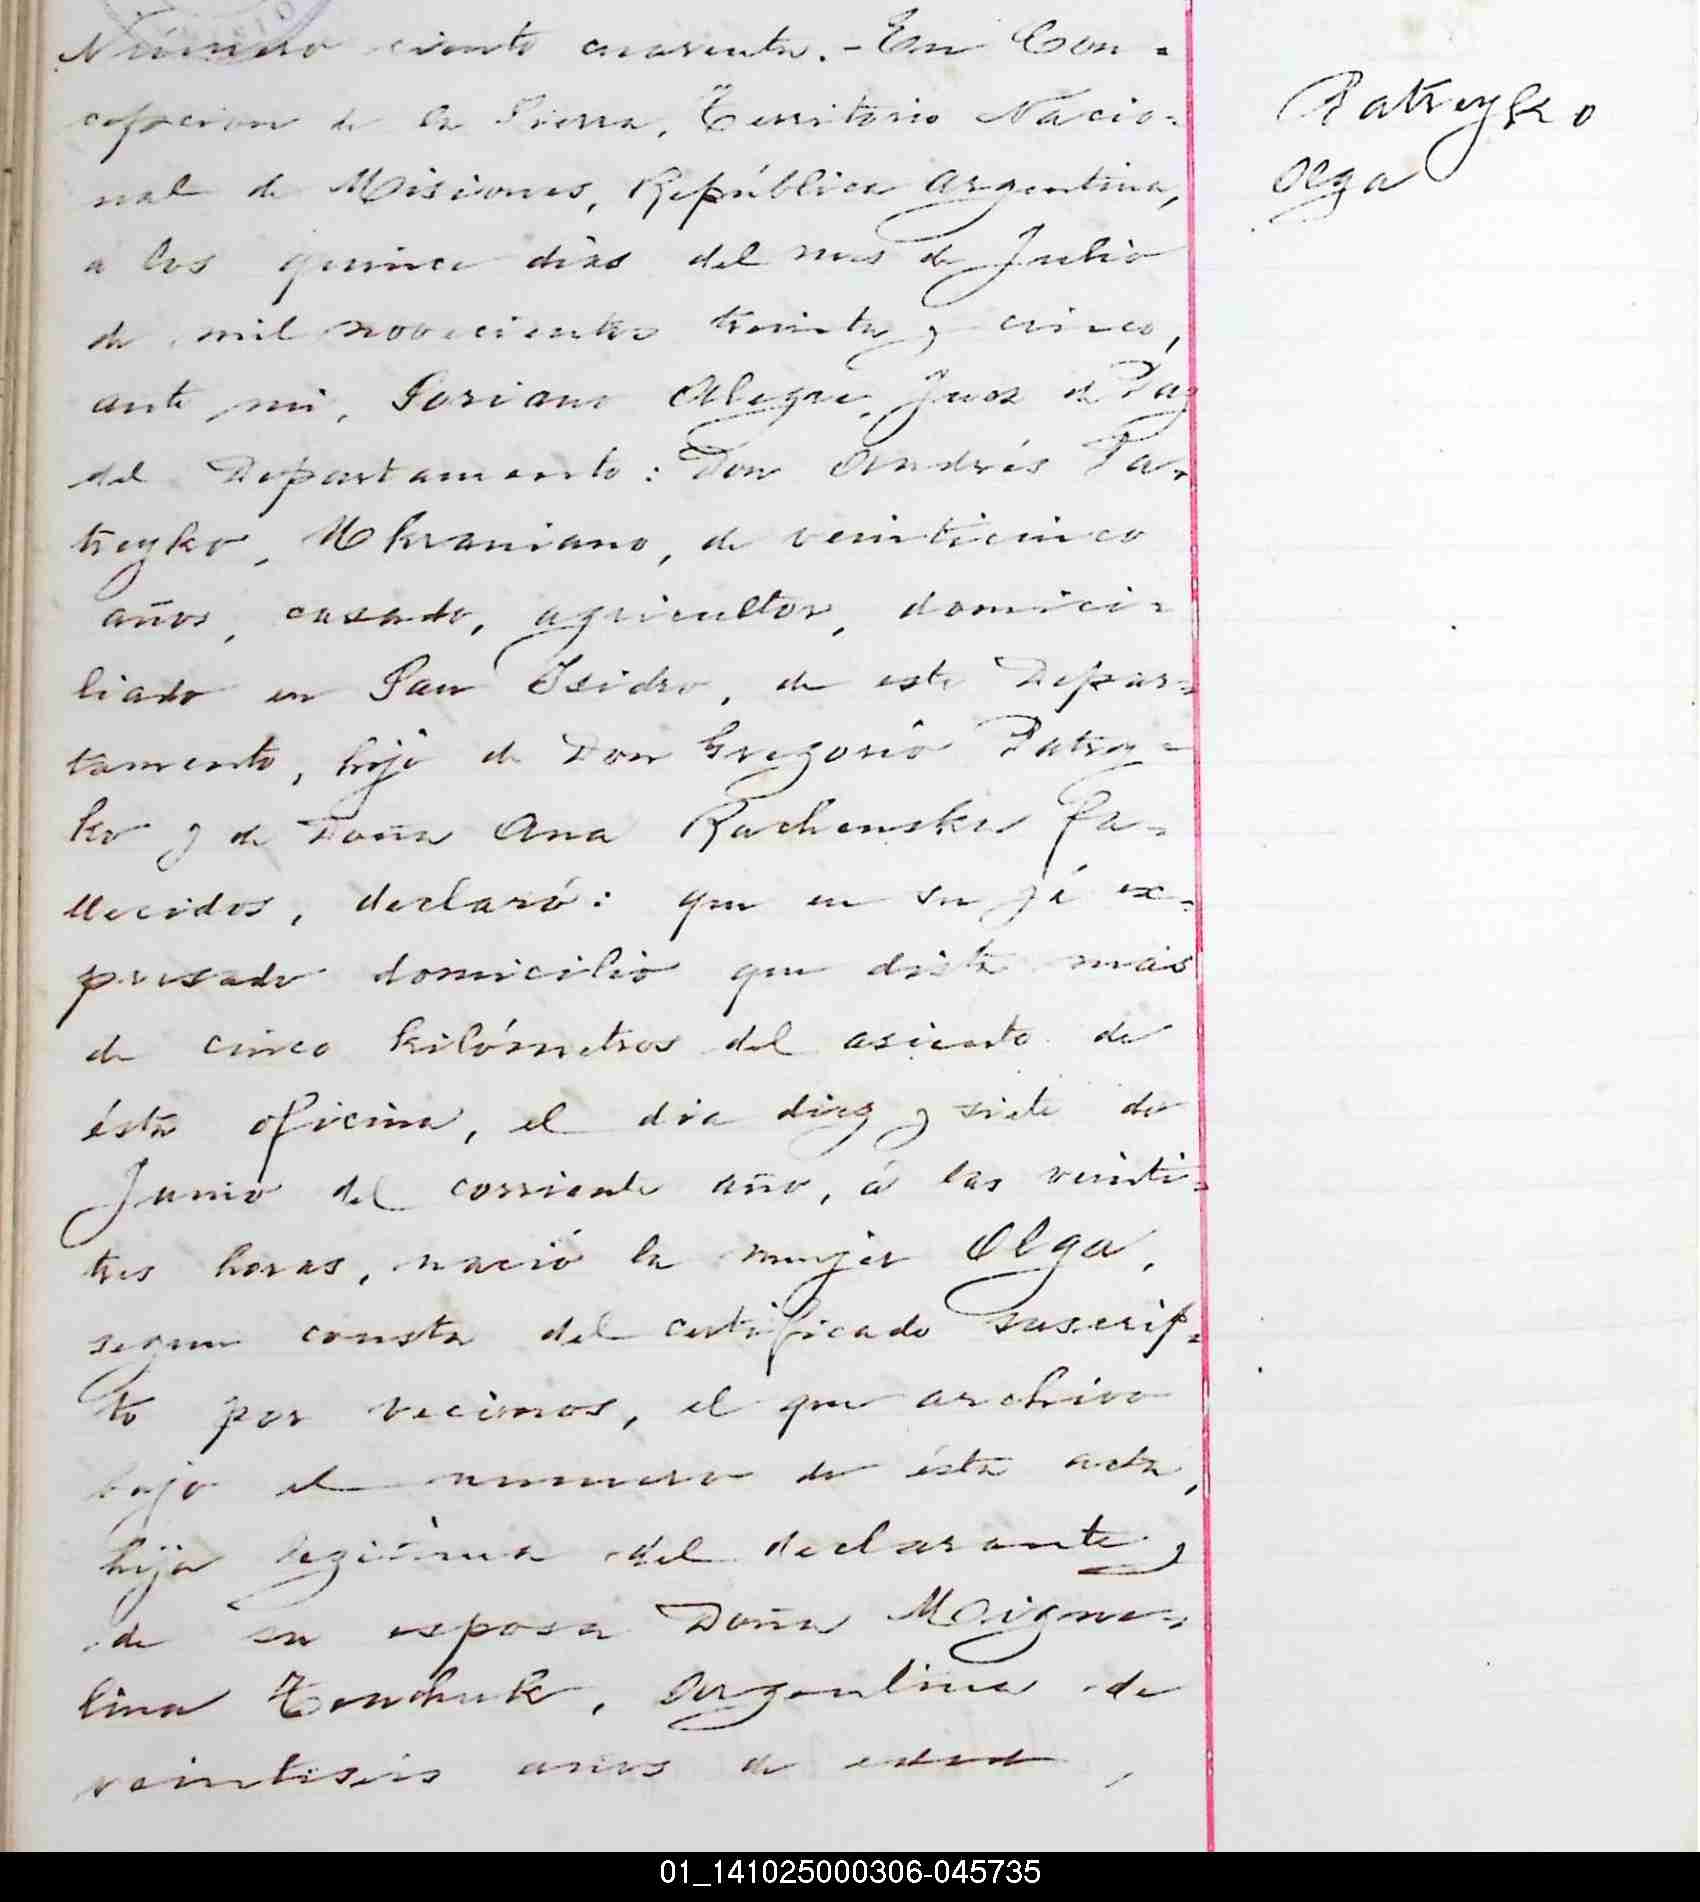 Número ciento cuarenta.- En Con=
cepcion de la Sierra, Territorio Nacio=
nal de Misiones, República Argentina,
a los quince dias del mes de Julio
de mil novecientos treinta y cinco,
ante mi, Soriano Alegre, Juez de Paz
del Departamento: Don Andrés Pa=
treyko, Ukraniano, de veinticinco
años, casado, agricultor, domici=
liado en San Isidro, de este Depar=
tamento, hijo de Don Gregorio Patrey=
ko y de Doña Ana Rachenska fa=
llecidos, declaró: que en su yá ex=
presado domicilio que dista más
de cinco kilómetros del asiento de
ésta oficina, el dia diez y siete de
Junio del corriente año, á las veinti=
tres horas, nació la mujer Olga,
segun consta del certificado suscrip=
to por vecinos, el que archivo
bajo el numero de ésta acta,
hija legitima del declarante y
de su esposa Doña
lina argentina de
veintiseis años de edad,
Patreyko
Olga
01_141025000306-045735